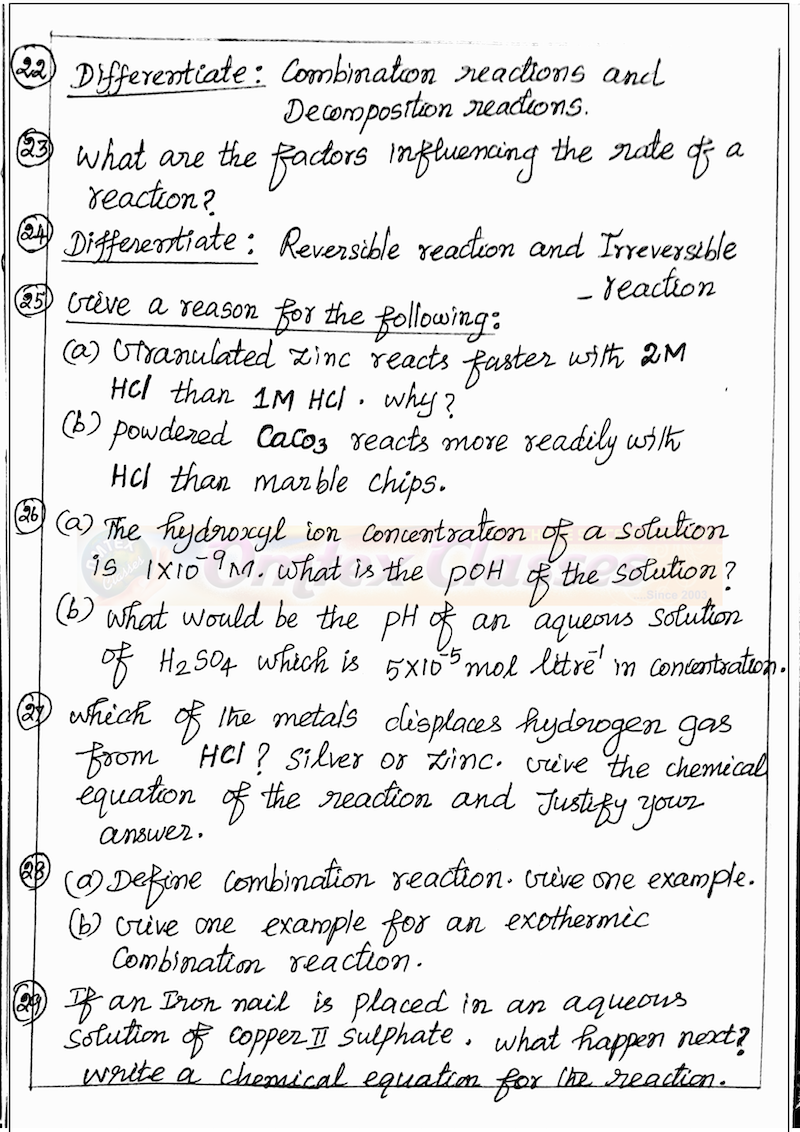 22 Differentiate: Combination reactions and
Decomposition reactions.
23 What are the factors influencing the rate of a
reaction?
24 Differentiate: Reversible reaction and Irreversible
- reaction
25 Give a reason for the following:
(a) Granulated Zinc reacts faster with 2M
HCl than 1M HCl. Why?
(b) powdered CaCO3 reacts more readily with
HCl than marble chips.
26 (a) The hydroxyl ion concentration of a solution
is 1X10⁻⁹M. What is the pOH of the solution?
Omtex Classes
...Since 2003
(b) What would be the pH of an aqueous solution
of H2SO4 which is 5X10⁻⁵ mol litre⁻¹ in concentration.
27 Which of the metals displaces hydrogen gas
from HCl? Silver or Zinc. Give the chemical
equation of the reaction and Justify your
answer.
28 (a) Define Combination reaction. Give one example.
(b) Give one example for an exothermic
Combination reaction.
29 If an Iron nail is placed in an aqueous
solution of Copper II Sulphate. What happen next?
Write a chemical equation for the reaction.